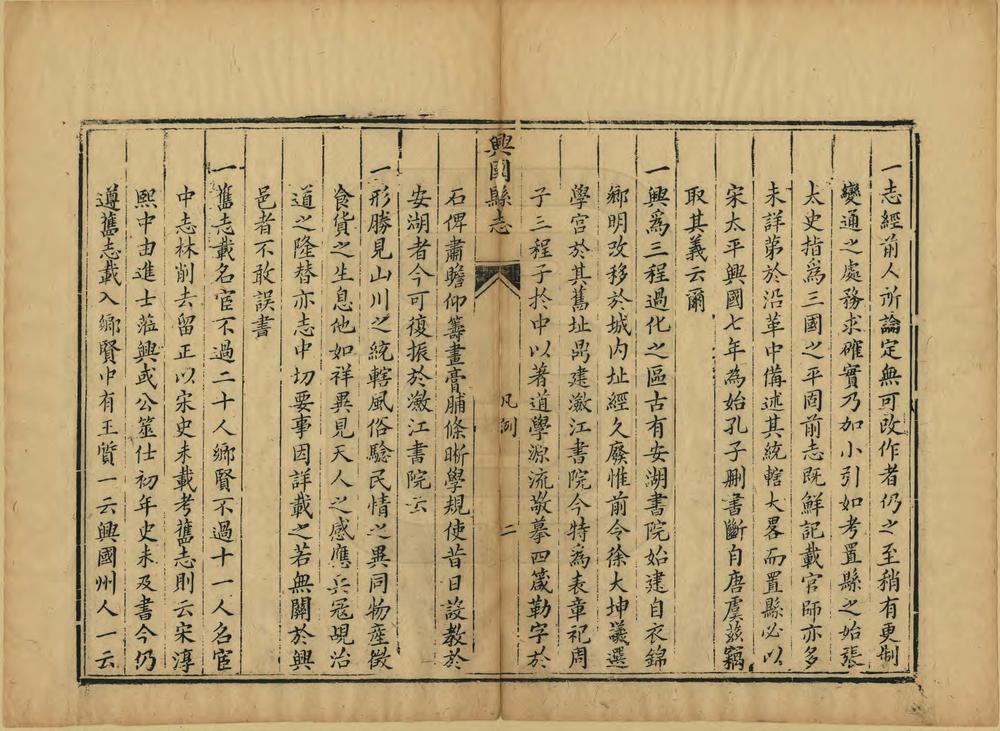 一志經前人所論定無可改作者仍之至稍有更制
變通之處務求確實乃加小引如考置縣之始張
太史指爲三國之平固前志既鮮記載官師亦多
未詳第於沿革中備述其統轄大畧而置縣必以
宋太平興國七年為始孔子刪書斷自唐虞茲竊
取其義云爾
一興爲三程過化之區古有安湖書院始建自衣錦
鄉明改移於城内址經久廢惟前令徐大坤議選
學宮於其舊址鼎建瀲江書院今特為表章祀周
子三程子於中以著道學源流敬摹四箴勒字於
興國縣志
凡例
二
石俾肅瞻仰籌畫膏脯條晰學規使昔日設教於
安湖者今可復振於瀲江書院云
一形勝見山川之統轄風俗驗民情之異同物產徵
食貨之生息他如祥異見天人之感應兵寇覘治
道之隆替亦志中切要事因詳載之若無關於興
邑者不敢誤書
一舊志載名宦不過二十人鄉賢不過十一人名宦
中志林削去留正以宋史未載考舊志則云宋淳
熙中由進士蒞興或公筮仕初年史未及書今仍
遵舊志載入鄉賢中有王質一云興國州人一云